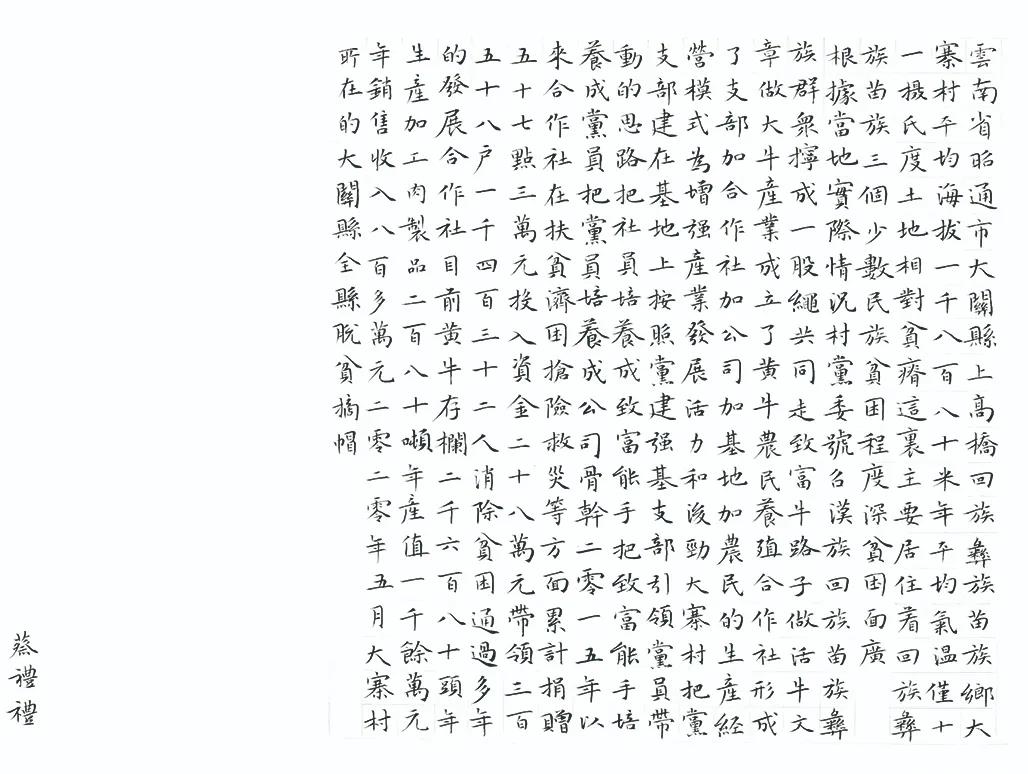 雲南省昭通市大關縣上高橋回族彝族苗族鄉大
寨村平均海拔一千八百八十米年平均氣溫僅十
一摄氏度土地相對貧瘠這裏主要居住着回族彝
族苗族三個少數民族貧困程度深貧困面廣
根據當地實際情况村黨委號召漢族回族苗族彝
族群衆擰成一股繩共同走致富牛路子做活牛文
章做大牛產業成立了黄牛農民養殖合作社形成
了支部加合作社加公司加基地加農民的生產経
營模式為增强產業發展活力和後勁大寨村把黨
支部建在基地上按照黨建强基支部引領黨員帶
動的思路把社員培養成致富能手把致富能手培
養成黨員把黨員培養成公司骨幹二零一五年以
來合作社在扶貧濟困搶險救災等方面累計捐贈
五十七點三萬元投入資金二十八萬元帶領三百
五十八户一千四百三十二人消除貧困通過多年
的發展合作社目前黄牛存欄二千六百八十頭年
生產加工肉製品二百八十噸年產值一千餘萬元
年銷售收入八百多萬元二零二零年五月大寨村
所在的大關縣全縣脱貧摘帽
蔡禮禮